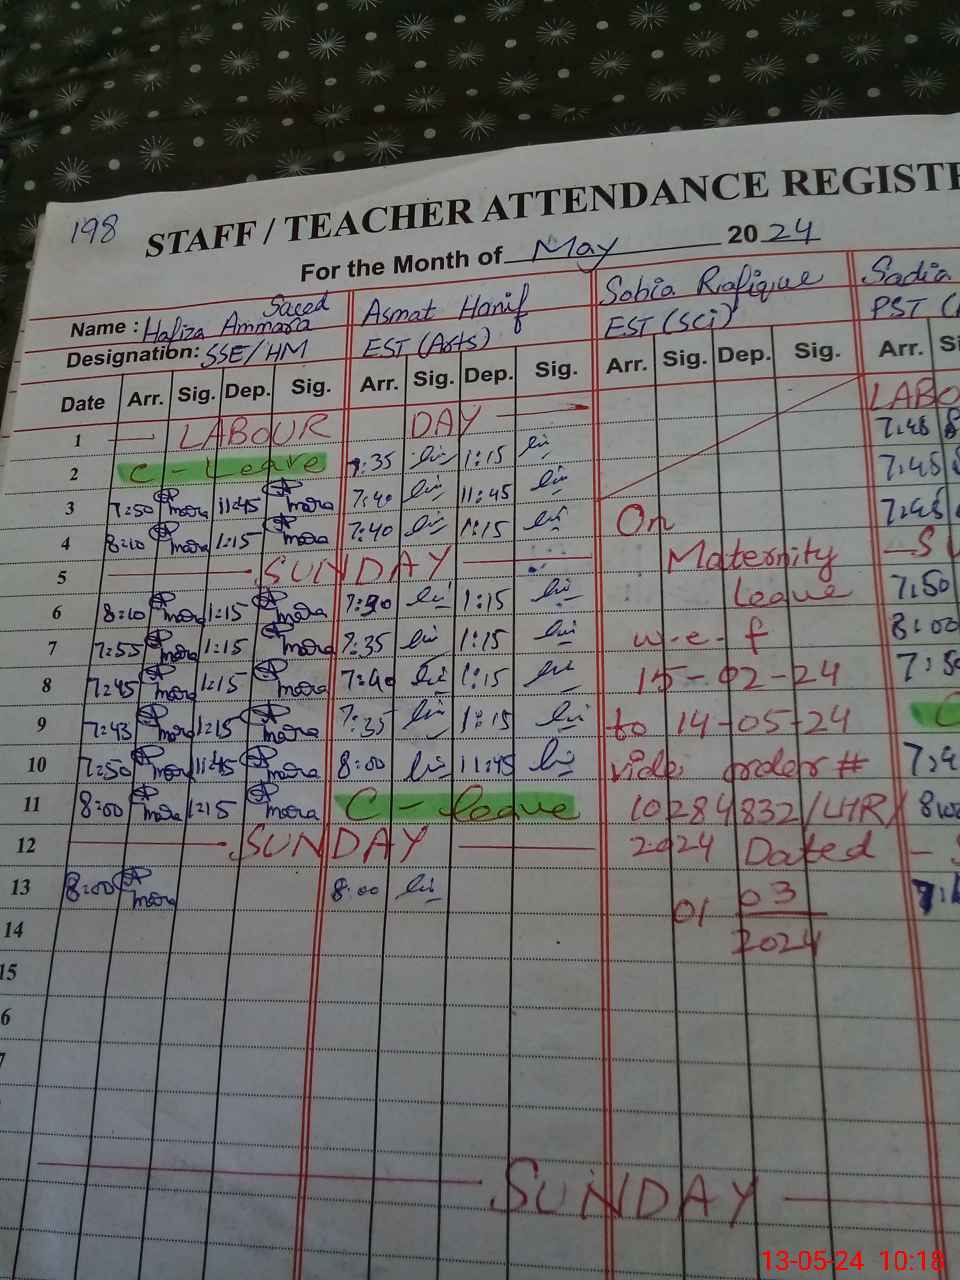 198
STAFF / TEACHER ATTENDANCE REGISTE
For the Month of May 2024
Name : Hafiza Ammara Saeed Asmat Hanif Sobia Rafique Sadia
Designation: SSE/HM EST (Arts) EST (Sci) PST (
Date Arr. Sig. Dep. Sig. Arr. Sig. Dep. Sig. Arr. Sig. Dep. Sig. Arr. Si
1 LABOUR DAY LABO
2 C - Leave 7:35 1:15 7:45
3 7:50 mara 11:45 mara 7:40 11:45 7:45
4 8:10 mara 1:15 mara 7:40 1:15 On 7:45
5 SUNDAY Maternity S
6 8:10 mara 1:15 mara 1:15 Leave 7:50
7 7:55 mara 1:15 mara 7:35 1:15 w-e-f 8:00
8 7:45 mara 1:15 mara 7:40 1:15 15-02-24 7:50
9 7:43 mara 1:15 mara 7:35 1:15 to 14-05-24 C
10 7:50 mara 11:45 mara 8:00 11:45 vide order # 7:4
11 8:00 mara 1:15 mara C - leave 10284832/LHR/ 8:00
12 SUNDAY 2024 Dated - S
13 8:00 mara 8:00 01 03
14 2024
15
6
7
SUNDAY
13-05-24 10:18